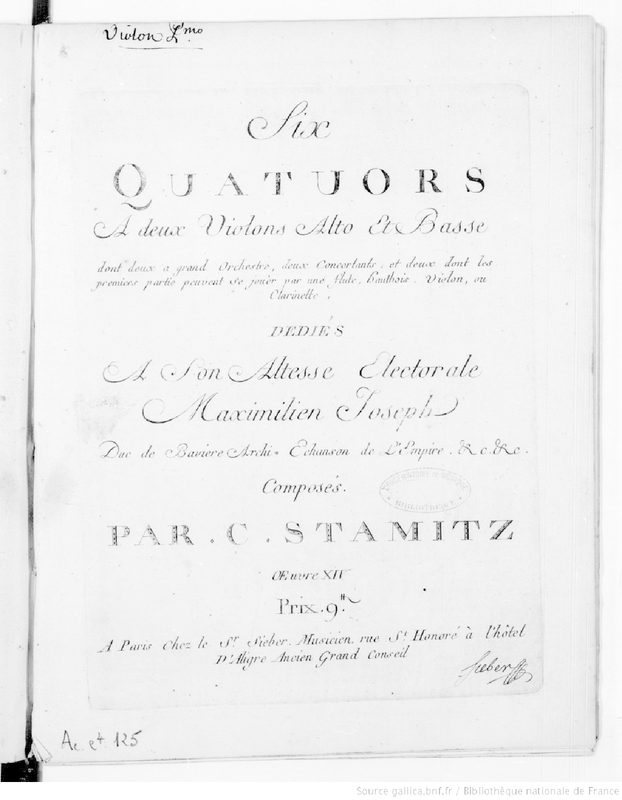 Violon 2.mo
Six
QUATUORS
A deux Violons Alto Et Basse
dont deux a grand Orchestre, deux Concertants, et deux dont les
premiers partie peuvent se jouer par une flute, Hautbois, Violon, ou
Clarinette.
DEDIÉS
A Son Altesse Electorale
Maximilien Joseph
Duc de Baviere Archi-Echanson de L'Empire. &c. &c.
Composés.
PAR . C . STAMITZ
Œuvre XIV
Prix. 9.tt
A Paris Chez le Sr. Sieber, Musicien, rue St. Honoré à l'hôtel
D'Aligre Ancien Grand Conseil
Sieber
BIBLIOTHEQUE
Ac e4 125
Source gallica.bnf.fr / Bibliothèque nationale de France